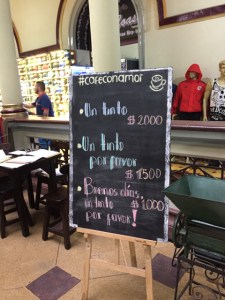 #cafeconamor
• Un tinto
$2000
• Un tinto
por favor
$1500
• Buenos días
un tinto $1,000
por favor!